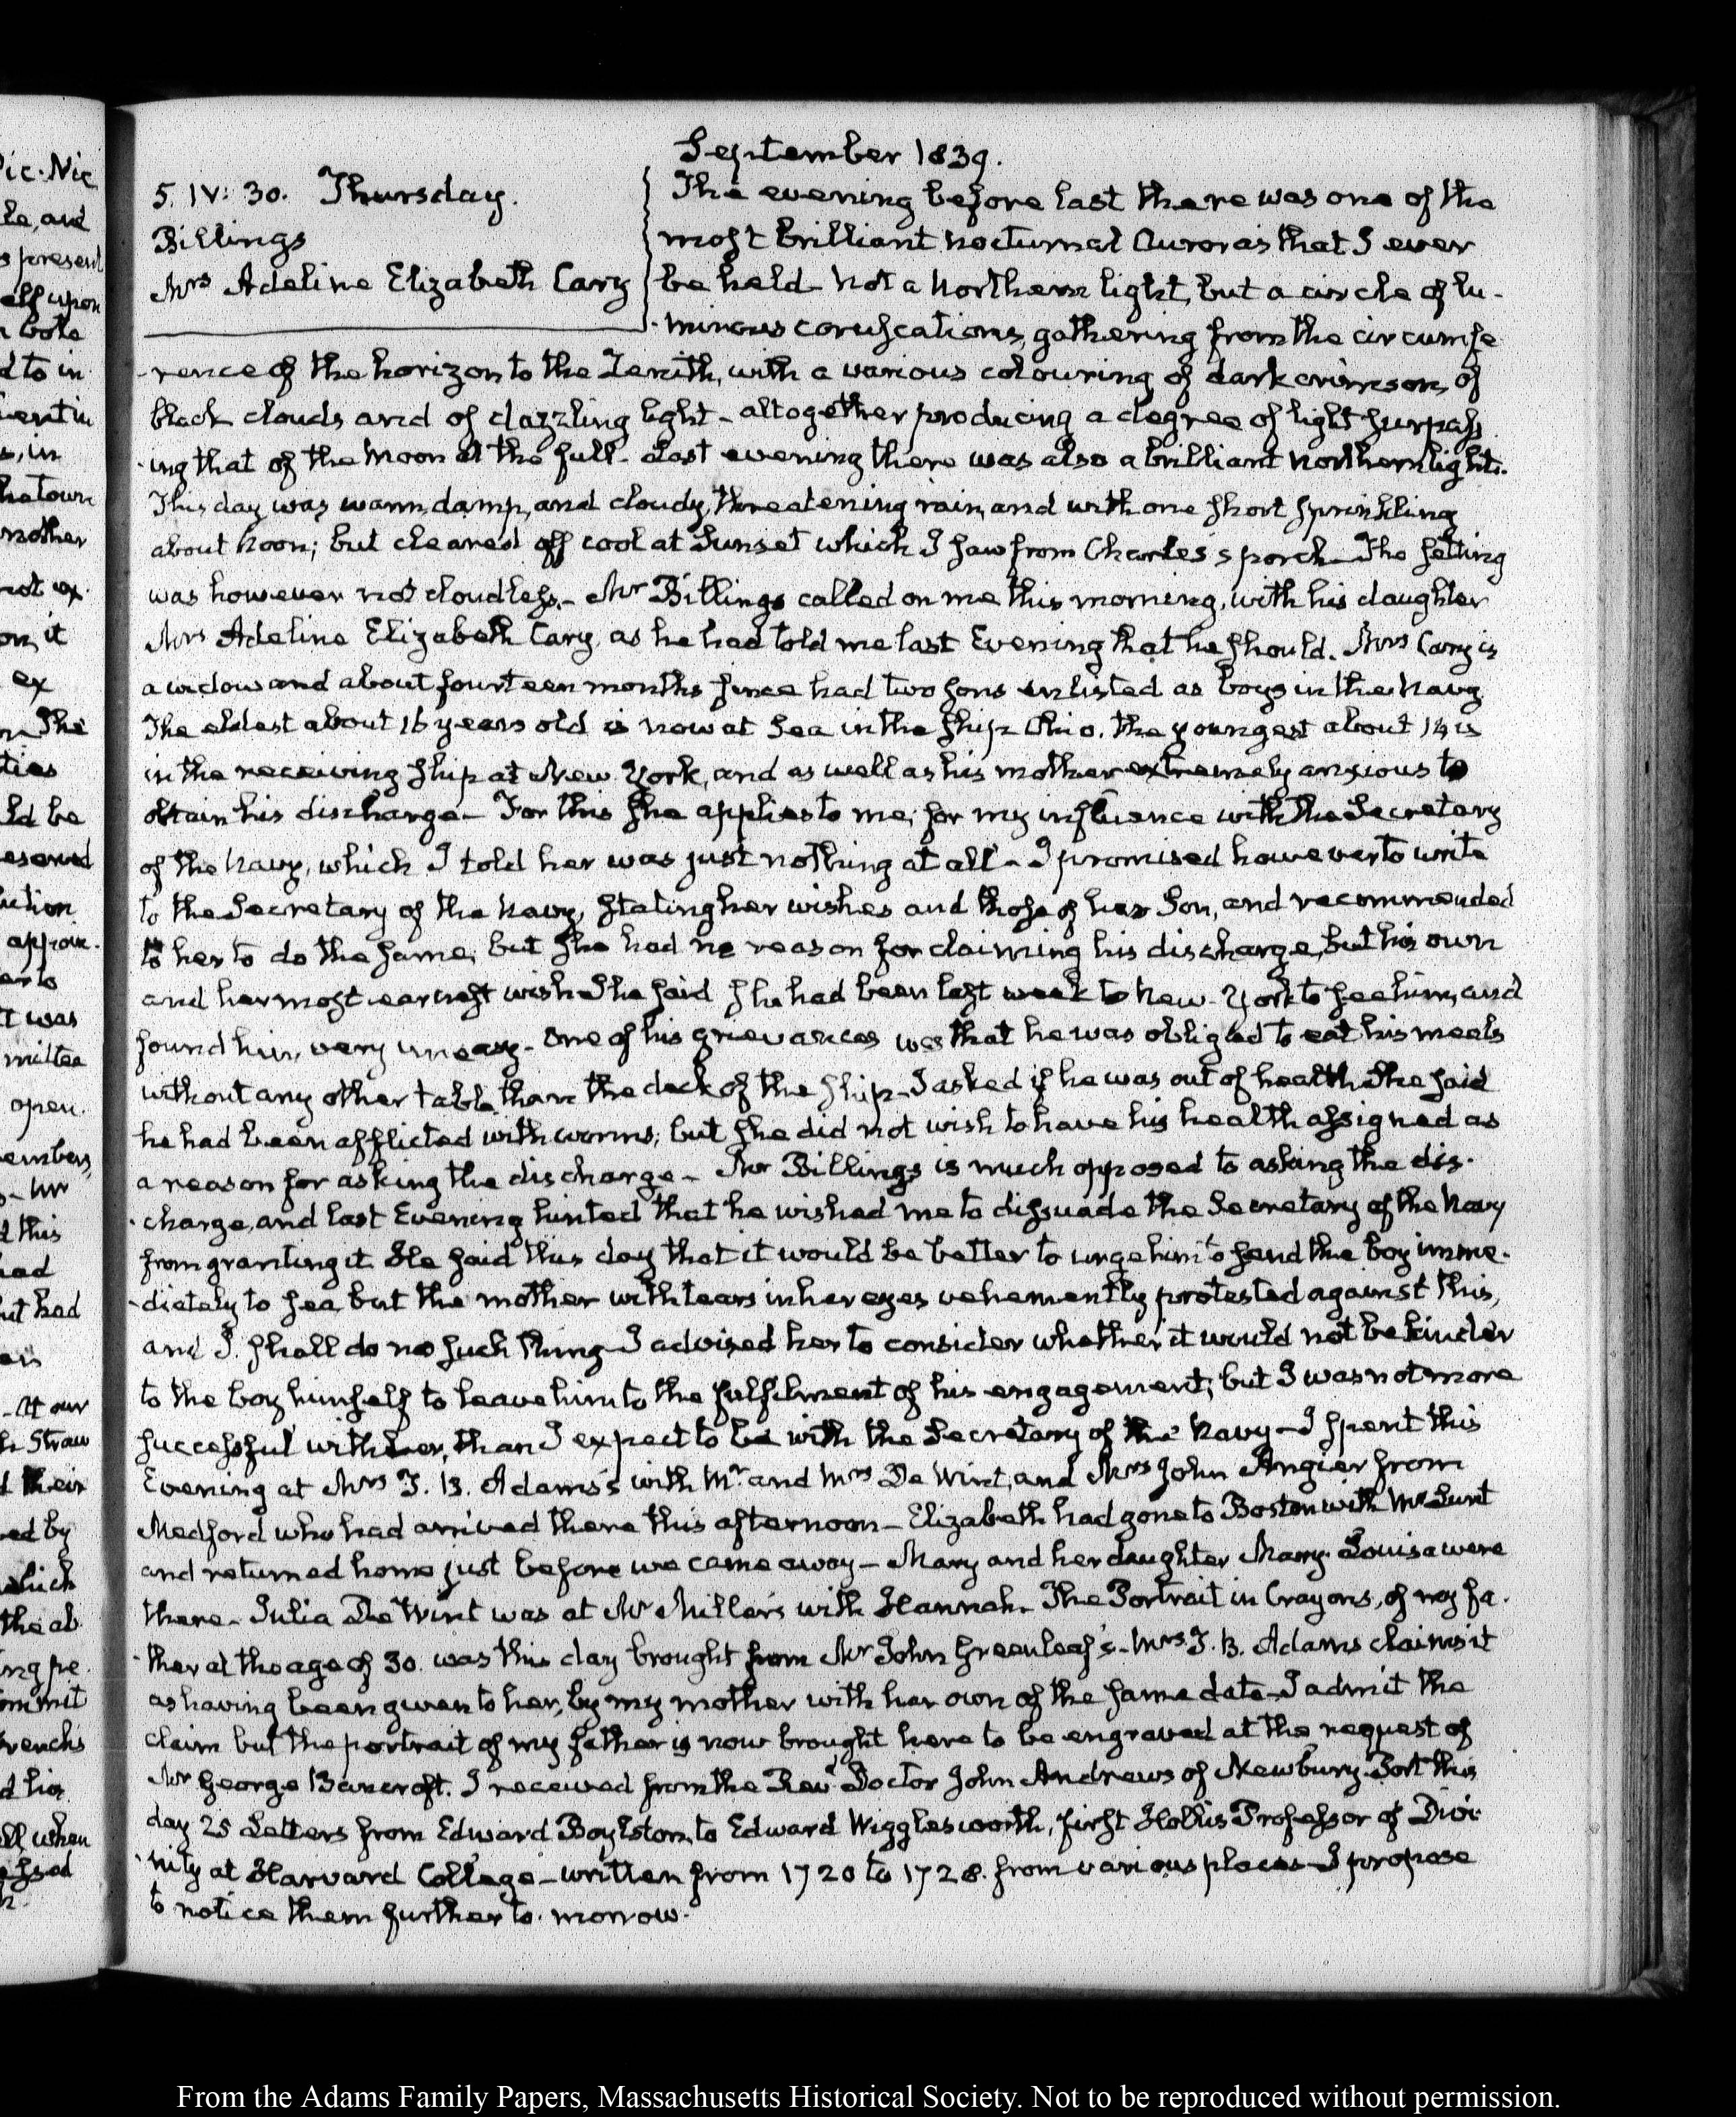 September 1839.
5. IV: 30. Thursday.
Billings
Mrs Adeline Elizabeth Cary
The evening before last there was one of the
most brilliant nocturnal Auroras that I ever
beheld- not a Northern light, but a circle of lu-
-minous coruscations, gathering from the circumfe
-rence of the horizon to the Zenith, with a various colouring of dark crimson, of
black clouds and of dazzling light - altogether producing a degree of light surpass
-ing that of the Moon at the full- Last evening there was also a brilliant Northern light.
This day was warm, damp, and cloudy, threatening rain, and with one short sprinkling
about Noon; but cleared off cool at Sunset which I saw from Charles's porch- The setting
was however not cloudless.- Mr Billings called on me this morning, with his daughter
Mrs Adeline Elizabeth Cary, as he had told me last Evening that he should. Mrs Cary is
a widow and about fourteen months since had two sons enlisted as boys in the Navy
The eldest about 16 years old is now at Sea in the ship Ohio. the youngest about 14 is
in the receiving ship at New-York, and as well as his mother extremely anxious to
obtain his discharge- For this she applies to me, for my influence with the Secretary
of the Navy, which I told her was just nothing at all- I promised however to write
to the Secretary of the Navy, stating her wishes and those of her Son, and recommended
to her to do the same; but she had no reason for claiming his discharge, but his own
and her most earnest wish- She said she had been last week to New-York to see him, and
found him, very uneasy- One of his grievances was that he was obliged to eat his meals
without any other table than the deck of the ship- I asked if he was out of health. She said
he had been afflicted with worms; but she did not wish to have his health assigned as
a reason for asking the discharge- Mr Billings is much opposed to asking the dis-
-charge, and last Evening hinted that he wished me to dissuade the Secretary of the Navy
from granting it. He said this day that it would be better to urge him to send the boy imme-
-diately to sea but the mother with tears in her eyes vehemently protested against this,
and I shall do no such thing- I advised her to consider whether it would not be kinder
to the boy himself to leave him to the fulfilment of his engagement; but I was not more
successful with her, than I expect to be with the Secretary of the Navy- I spent this
Evening at Mrs T. B. Adams's with Mr and Mrs De Wint, and Mrs John Angier from
Medford who had arrived there this afternoon- Elizabeth had gone to Boston with Mr Lunt
and returned home just before we came away- Mary and her daughter Mary-Louisa were
there- Julia De Wint was at Mr Miller's with Hannah. The Portrait in Crayons, of my fa-
-ther at the age of 30. was this day brought from Mr John Greenleaf's- Mrs T. B. Adams claims it
as having been given to her, by my mother with her own of the same date- I admit the
claim but the portrait of my father is now brought here to be engraved at the request of
Mr George Bancroft. I received from the Revd Doctor John Andrews of Newbury-Port this
day 25 Letters from Edward Boylston, to Edward Wigglesworth, first Hollis Professor of Divi-
-nity at Harvard College- written from 1720 to 1728. from various places- I propose
to notice them further to-morrow.